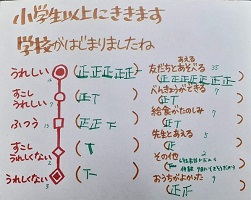 小学生以上にききます
学校がはじまりましたね
うれしい (正正正正正)
すこし
うれしい (正丅)
ふつう (正正丅)
すこし
うれしくない (丅)
うれしくない (下)
友だちとあそべる 35
あえる
正正正正正正正
べんきょうができる
正丅 7
給食がたのしみ 7
正丅
先生とあえる 5
正
その他 2
おうちがよかった 9
正正